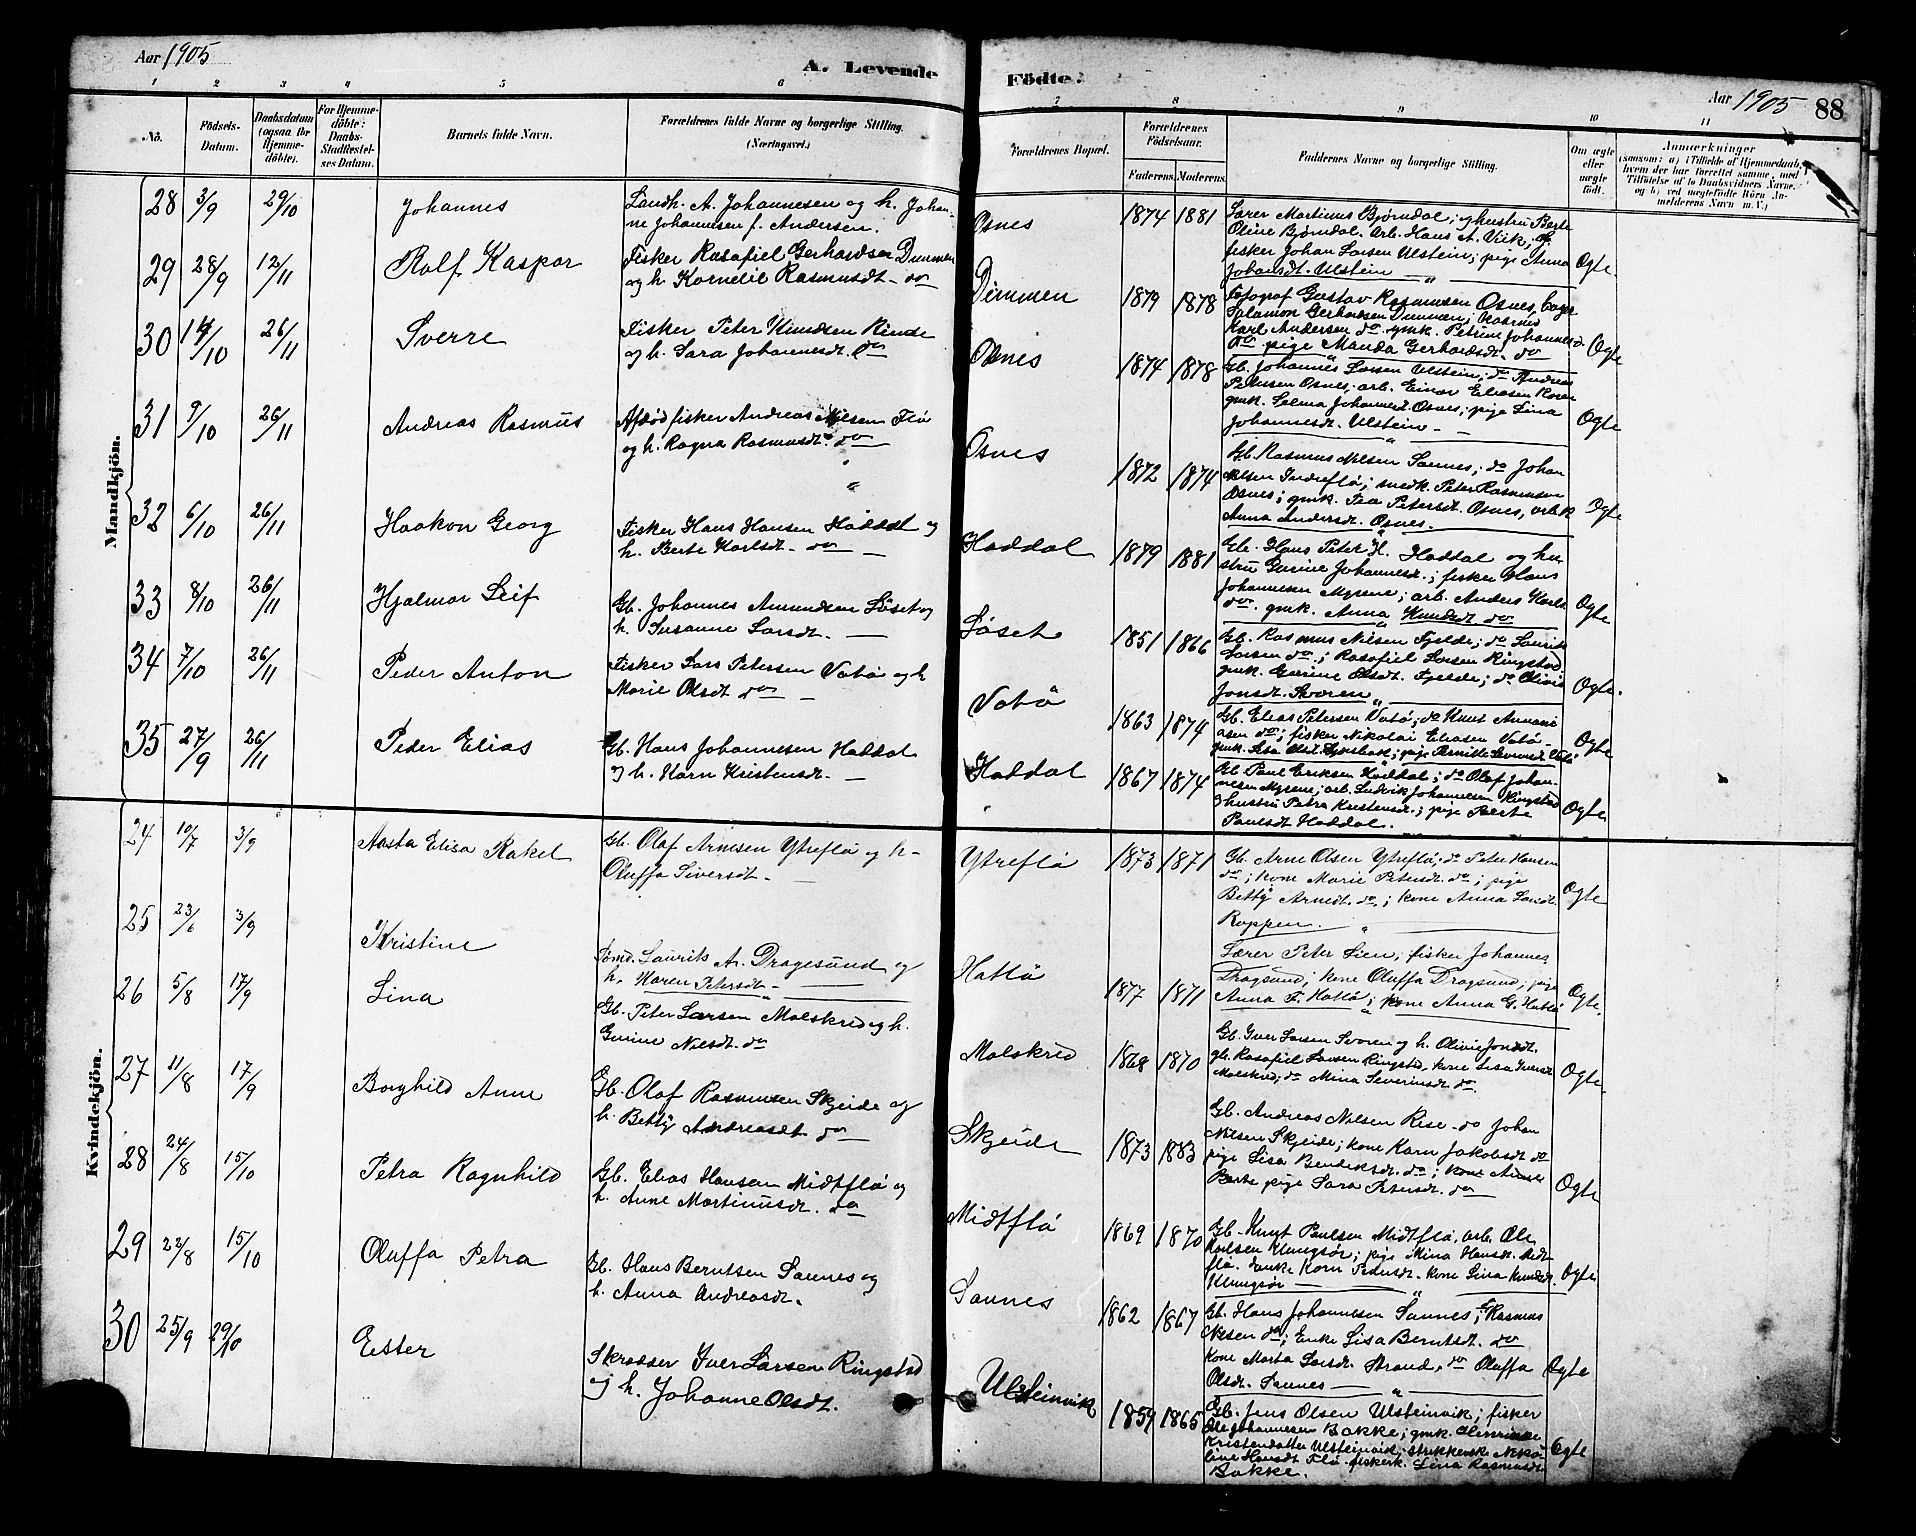 Aar 1905
A. Levende
Födte.
Aar 1905
88
1 2 3 4 5 6 7 8 9 10 11
No.
Födsels-Datum.
Daabsdatum (ogsaa for Hjemme-döbte).
For Hjemme-döbte: Daabs-Stadfæstel-ses Datum.
Barnets fulde Navn.
Forældrenes fulde Navne og borgerlige Stilling.
(Næringsvei.)
Forældrenes Bopæl.
Forældrenes Födselsaar.
Faderens. Moderens.
Faddernes Navne og borgerlige Stilling.
Om ægte eller uægte födt.
Anmærkninger
(saasom: a) i Tilfælde af Hjemmedaab, hvem der har forrettet samme, med Tilföielse af to Daabsvidners Navne, og b) ved uægtefödte Börn An-melderens Navn m. V.)
Mandkjön.
28 3/9 29/10 Johannes
Landh. A. Johannesen og h. Johan-
ne Johannesen f. Andersen.
Osnes 1874 1881
Lærer Martinus Bjørndal; og hustru Berte
Oline Bjørndal. arb. Hans A. Viik;
fisker Johan Larsen Ulstein; pige Anna
Johansdt. Ulstein Ægte.
29 28/9 12/11 Rolf Kaspar
Fisker Rasafiel Gerhardsen Dimmen
og h. Kornelie Rasmusdt. do
Dimmen 1879 1878
Fotograf Gustav Rasmusen Osnes,
Salamon Gerhardsen Dimmen;
Karl Andersen do. gmk. Petrine Johannesd.
do. pige Manda Gerhardsdt. do Ægte
30 14/10 26/11 Sverre
Fisker Peter Knudsen Rinde
og h. Sara Johannesdt. do
Osnes 1874 1878
Gb. Johannes Larsen Ulstein; do Andreas
Petersen Osnes. arb. Einar Eliasen
gmk. Selma Johannesd. Osnes; pige Lina
Johannesdt. Ulstein Ægte
31 9/10 26/11 Andreas Rasmus
Afdød fisker Andreas Nilsen Flø
og h. Ragna Rasmusdt. do
Osnes 1872 1874
Gb. Rasmus Nilsen Sannes; do Johan
Nilsen Indreflø; snedk. Peter Rasmusen
Osnes; gmk. Tea Petersdt. Osnes, arb.k
Anna Andersdt. Osnes. Ægte
32 6/10 26/11 Haakon Georg
Fisker Hans Hansen Haddal og
h. Berte Karlsdt. do
Haddal 1879 1881
Gb. Hans Peter H. Haddal og hu-
stru Gurine Johannesdt.; fisker Hans
Johannesen Myrene; arb. Anders Karls
do. gmk. Anna Knudsdt. do Ægte
33 8/10 26/11 Hjalmar Leif
Gb. Johannes Amundsen Løset og
h. Susanne Larsdt.
Løset 1851 1866
Gb. Rasmus Nilsen Fjelde; do Laurits
Larsen do; Rasafiel Larsen Ringstad
gmk. Gurine Olsdt. Fjelde; do Olivia
Jonsdt. Svoren Ægte.
34 7/10 26/11 Peder Anton
Fisker Lars Petersen Vatø og h
Marie Olsdt do
Vatø 1863 1874
Gb. Elias Petersen Vatø; do Knut Annani-
asen do; fisker Nikolai Eliasen Vatø
gmk. Lisa Olsd. ; pige Pernille Vatø Ægte
35 27/9 26/11 Peder Elias
Gb. Hans Johannesen Haddal
og h. Karn Kristensdt.
Haddal 1867 1874
Gb. Paul Eriksen Haddal; do Olaf Johan-
nesen Myrene; arb. Ludvik Johannesen Ringstad
og hustru Petra Kristensdt.; pige Berte
Paulsdt Haddal. Ægte
Kvindekjön.
24 10/7 3/9 Aasta Elisa Rakel
Gb. Olaf Arnesen Ytreflø og h.
Oluffa Siversdt.
Ytreflø 1873 1871
Gb. Arne Olsen Ytreflø; do Peter Hansen
do; kone Marie Petersdt. do; pige
Betty Arnedt. do; kone Anna Larsdt.
Roppen. Ægte
25 23/6 3/9 Kristine
Laurits A. Dragesund og
h. Maren Petersdt.
Hatlø 1877 1871
Lærer Peter Lien; fisker Johannes
Dragsund; kone Oluffa Dragsund; pige
Anna F. Hatlø; kone Anna G. Hatlø Ægte.
26 5/8 17/9 Lina
Gb. Peter Larsen Molskred og h.
Gurine Nilsdt. do
Molskred 1868 1870
Gb. Iver Larsen Svoren og h. Olivie Jonsdt.
gb. Rasafiel Larsen Ringstad, kone Lisa Iversd.
Molskred; do Mina Severinsdt. do. Ægte
27 11/8 17/9 Borghild Anne
Gb. Olaf Rasmusen Skjeide og
h. Betty Andreasdt. do
Skjeide 1873 1883
Gb. Andreas Nilsen Rise do Johan
Nilsen Skjeide; kone Karn Jakobsdt. do
pige Lisa Bendiksdt. do; kone
Berte pige Sara Petersdt. do Ægte
28 24/8 15/10 Petra Ragnhild
Gb. Elias Hansen Midtflø og
h. Anne Martinusdt. do
Midtflø 1869 1870
Gb. Knut Paulsen Midtflø, arb. Ole
Karlsen Klungsør; pige Mina Hansd. Midt-
flø. Enke Karn Pedersdt. kone Lina Knudsdt.
Klungsør Ægte
29 22/8 15/10 Oluffa Petra
Gb. Hans Berntsen Sannes og
h. Anna Andreasdt.
Sannes 1862 1867
Gb. Hans Johannesen Sannes; Rasmus
Nilsen do; Enke Lisa Berntsdt. do
Kone Marta Larsdt. Strand, do Oluffa
Olsdt. Sannes Ægte
30 25/9 29/10 Ester
Skrædder Iver Larsen Ringstad
og h. Johanne Olsdt.
Ulsteinvik 1859 1865
Gb. Jens Olsen Ulsteinvik; fisker
Ole Johannesen Bakke; gmk. Henrikke
Kristendatter Ulsteinvik; strikkerske Niko-
line Hansdt Flø. fiskerk. Lina Rasmusdt
Bakke. Ægte